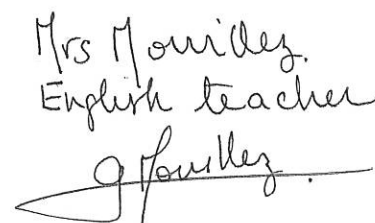 Mrs Mouillez.
English teacher
GMouillez.